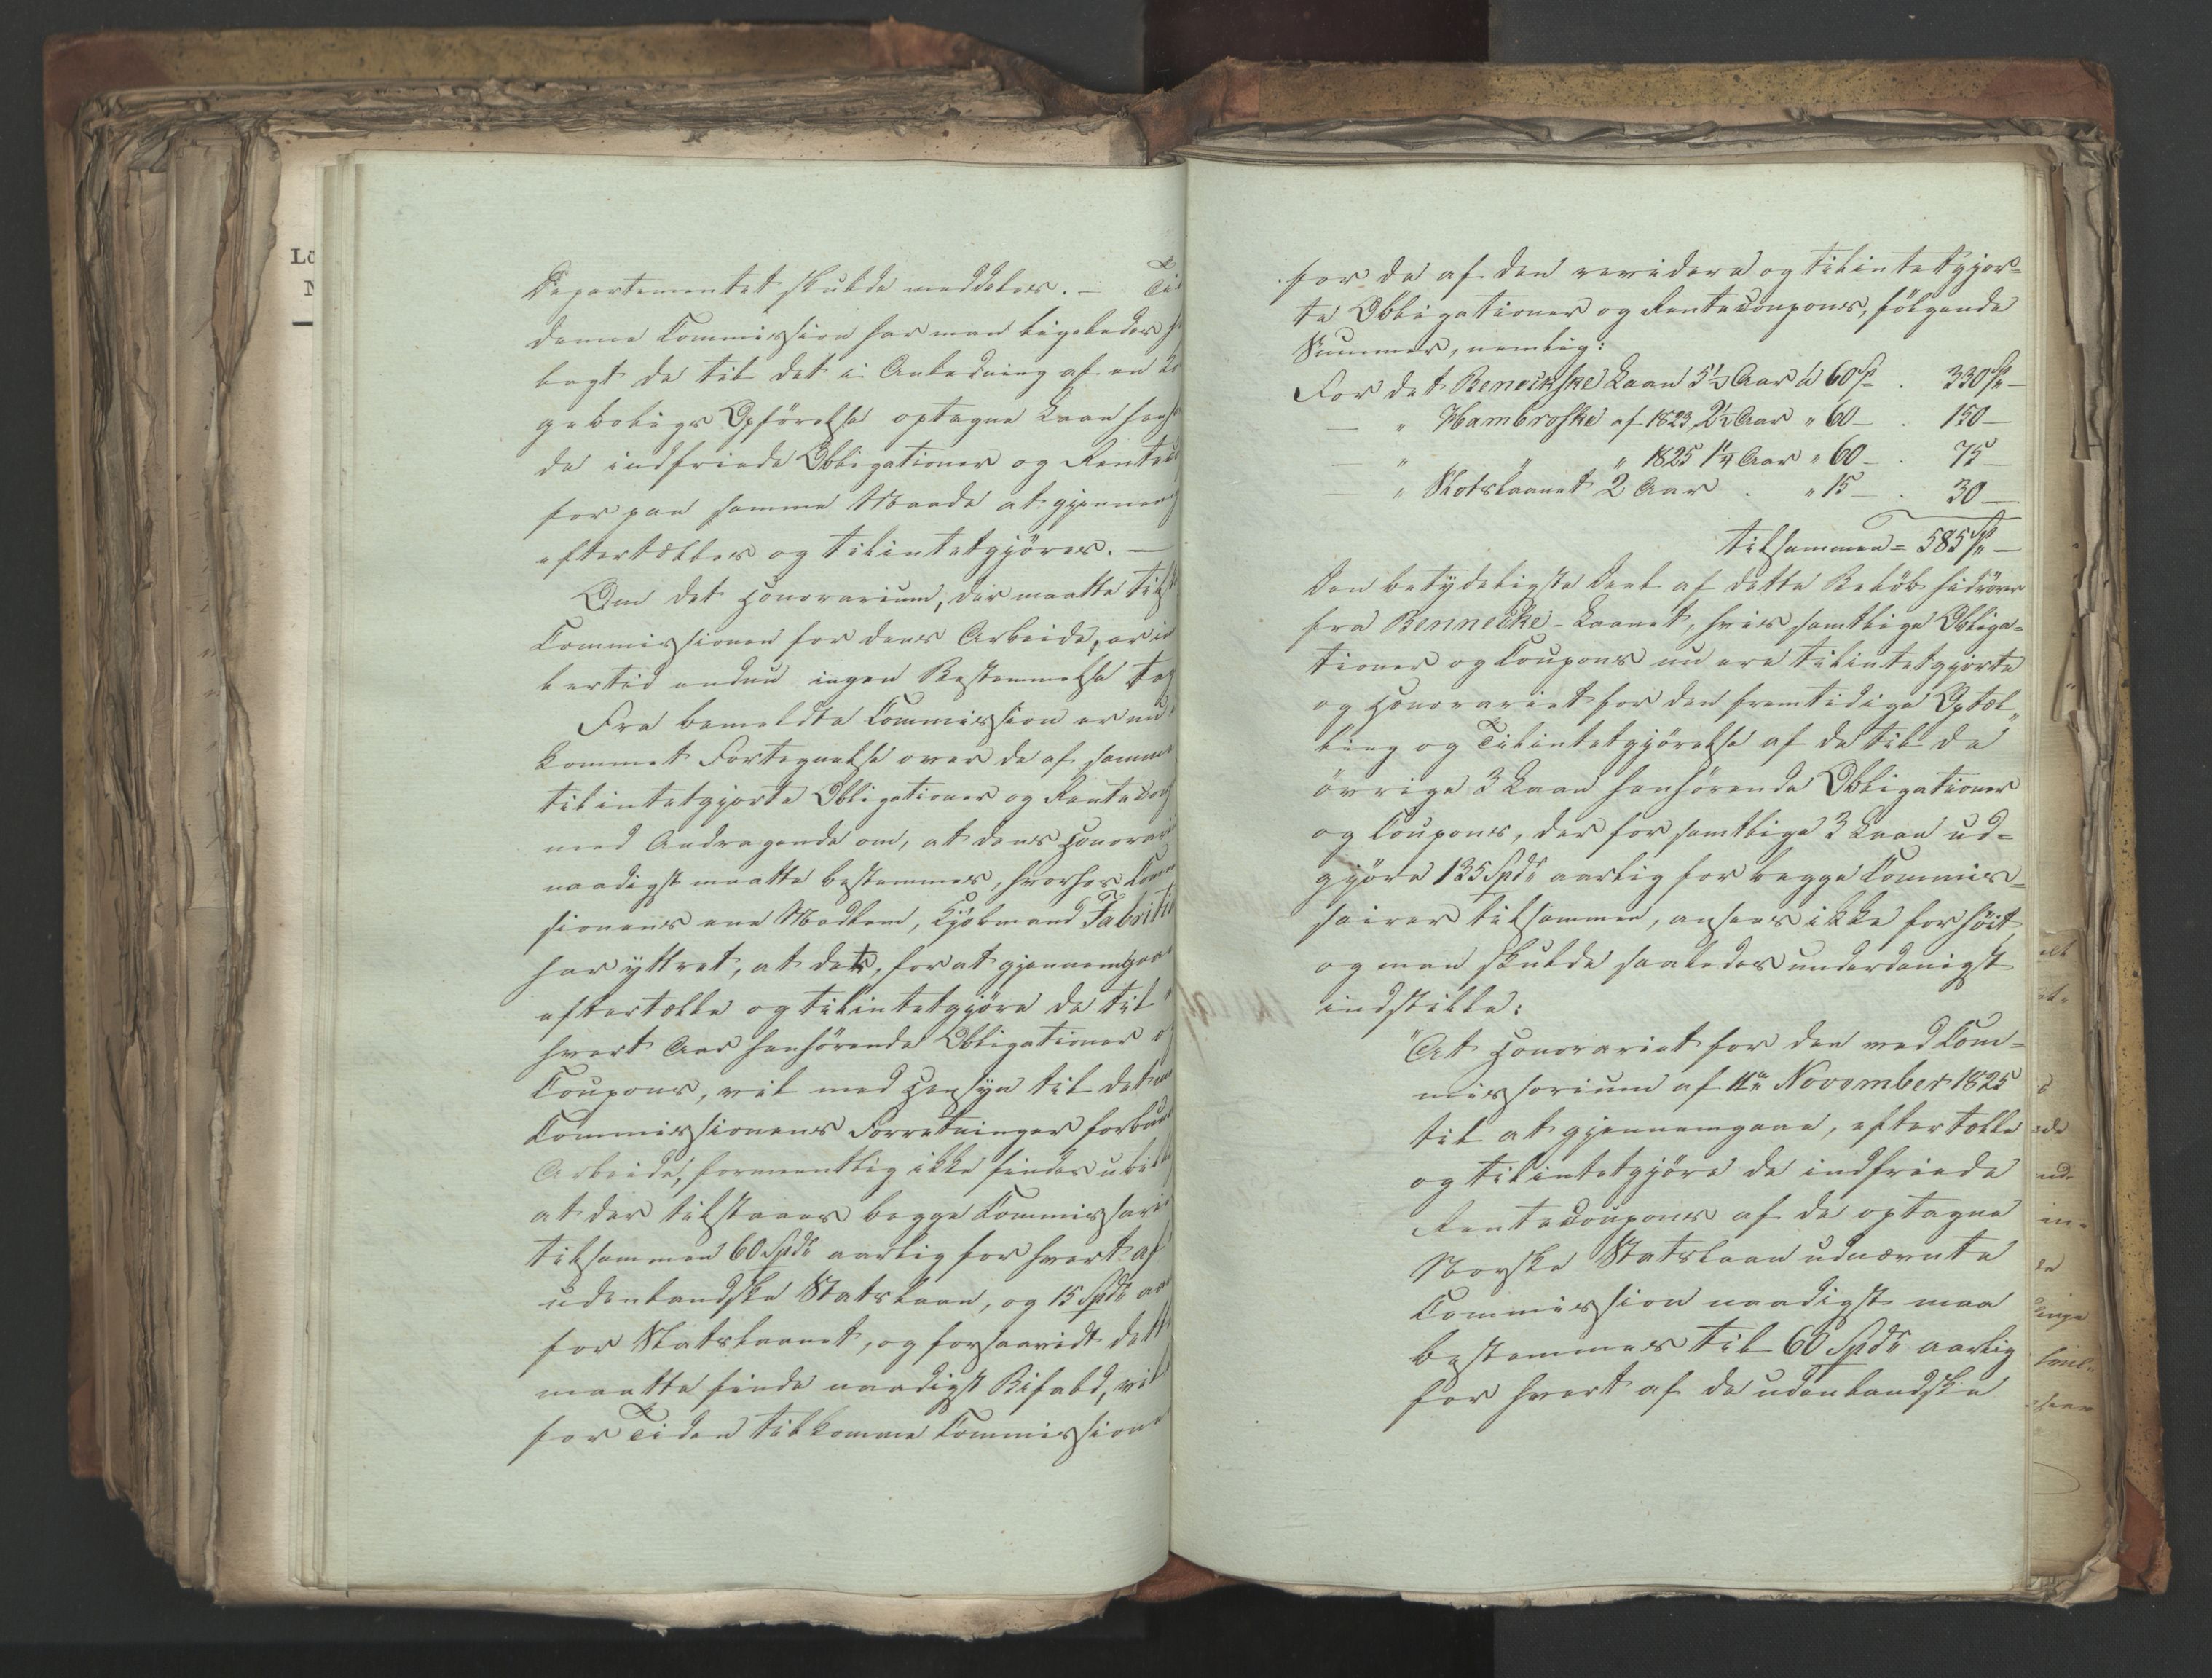 Departementet skulde meddeles. — Til
denne Commission har man ligeledes
lagt de til det i Anledning af en
geboligs Opförelse optagne Laan
de indfriede Obligationer og Rente
for paa samme Maade at gjennem
eftertælles og tilintetgjöres. —
Om det Honorarium, der maatte
Commissionen for dens Arbeide, er
lertid endnu ingen Bestemmelse
Fra bemeldte Commission er nu
kommet Fortegnelse over de af samme
tilintetgjorte Obligationer og Rente
med Andragende om, at dens Honorari
naadigst maatte bestemmes, hvorhos
sionens ene Medlem, Kjøbmand Fabriti
har yttret, at det, for at gjennemgaae
eftertælle og tilintetgjöre de til
hvert Aar henhörende Obligationer
Coupons, vil med Hensyn til det
Commissionens Forretninger
Arbeide, formeentlig ikke findes
at der tilstaaes begge
tilsammen 60 Spdr aarlig for hvert af
udenlandske Statslaan, og 15 Spdr
for Slotslaanet, og forsaavidt dette
maatte finde naadigst Bifald, vil
for Tiden tilkomme Commissione
for de af den reviderede og tilintetgjor=
te Obligationer og Rentecoupons, fölgende
Summer, nemlig:
For det Beneckske Laan 5½ Aar à 60 Sp . 330 Sp —
— " Hambroske af 1823, 2½ Aar " 60 — . 150 —
— " " " 1825 1¼ Aar " 60 — . 75 —
" Slotslaanet 2 Aar . " 15 — . 30 —
tilsammen = 585 Sp —
Den betydeligste Deel af dette Belöb hidrörer
fra Bennecke-Laanet, hvis samtlige Obliga=
tioner og Coupons nu ere tilintetgjorte
og Honorariet for den fremtidige Optæl„
ling og Tilintetgjörelse af de til de
övrige 3 Laan henhörende Obligationer
og Coupons, der for samtlige 3 Laan ud=
gjöre 135 Spdr aarlig for begge Commis=
sairer tilsammen, ansees ikke for höit,
og man skulde saaledes underdanigst
indstille:
"At Honorariet for den ved Com=
missorium af 11te November 1825
til at gjennemgaae, eftertælle
og tilintetgjöre de indfriede
Rentecoupons af de optagne
Norske Statslaan udnævnte
Commission naadigst maa
bestemmes til 60 Spdr aarlig
for hvert af de udenlandske